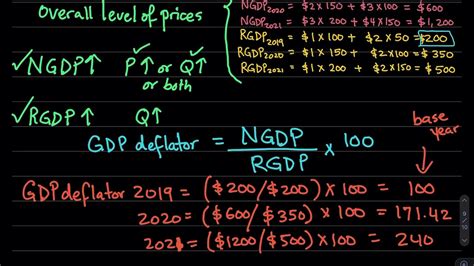 Overall level of prices
NGDP2020 = $2 x 150 + $3 x 100 = $600
NGDP2021 = $3 x 200 + $4 x 150 = $1,200
RGDP2019 = $1 x 100 + $2 x 50 = $200
RGDP2020 = $1 x 150 + $2 x 100 = $350
RGDP2021 = $1 x 200 + $2 x 150 = $500
✓NGDP↑ P↑ or Q↑
or both
✓RGDP↑ Q↑
GDP deflator = NGDP / RGDP x 100
base
year
GDP deflator 2019 = ($200/$200) x 100 = 100
2020 = ($600/$350) x 100 = 171.42
2021 = ($1200/$500) x 100 = 240
9
10